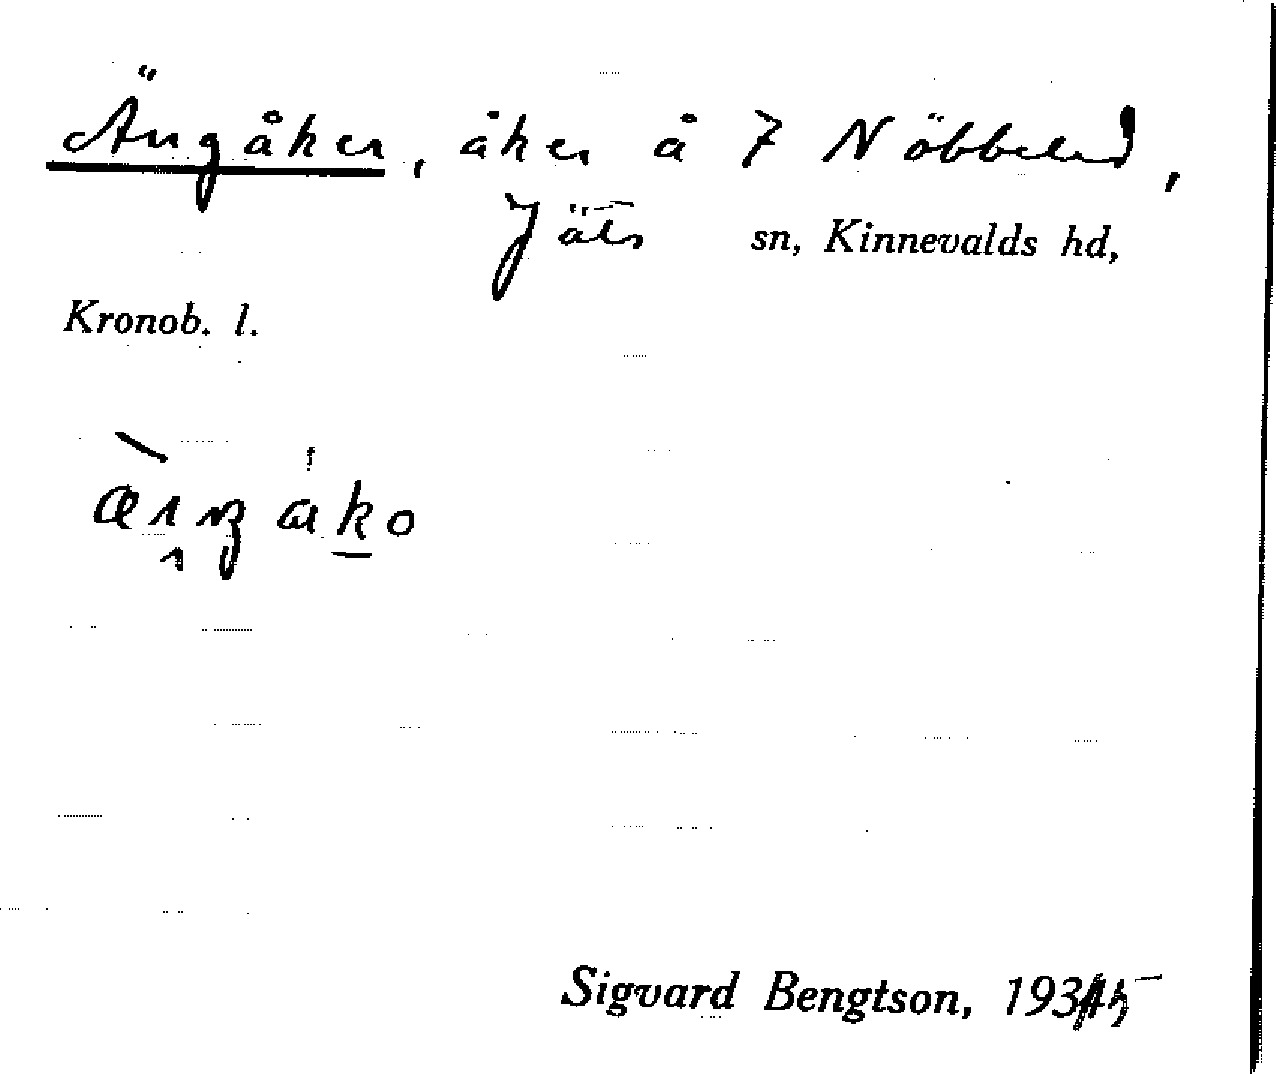 Ängåker, åker å 7 Nöbbeled,
Jäts sn, Kinnevalds hd,
Kronob. l.
Sigvard Bengtson, 1935